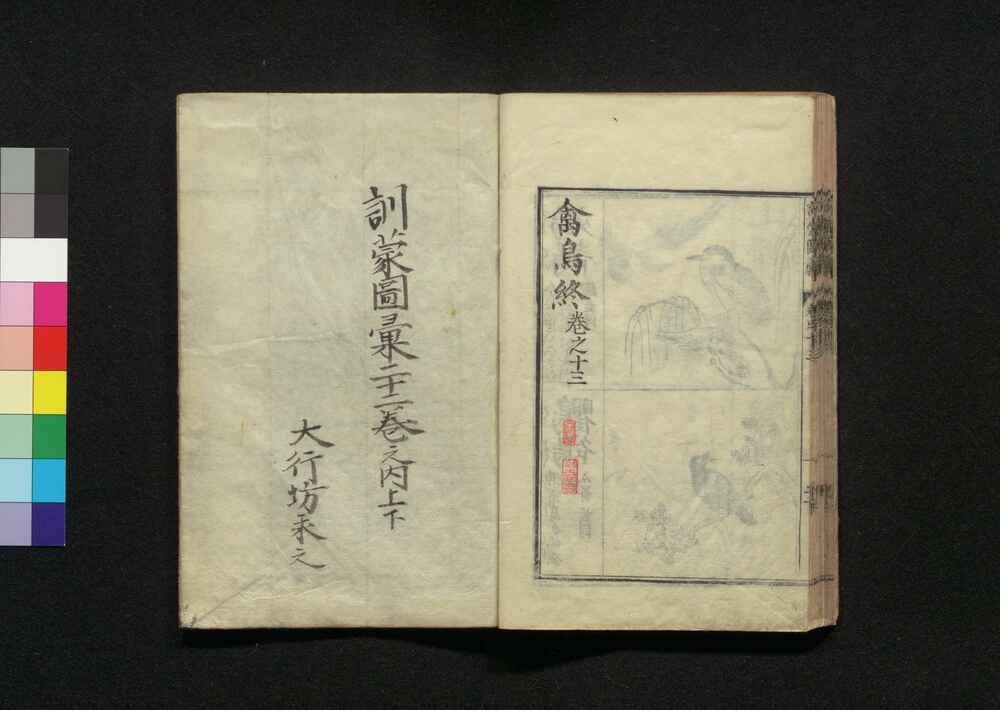 禽鳥終 卷之十三
訓蒙圖彙二十二卷之内上下
大行坊求之